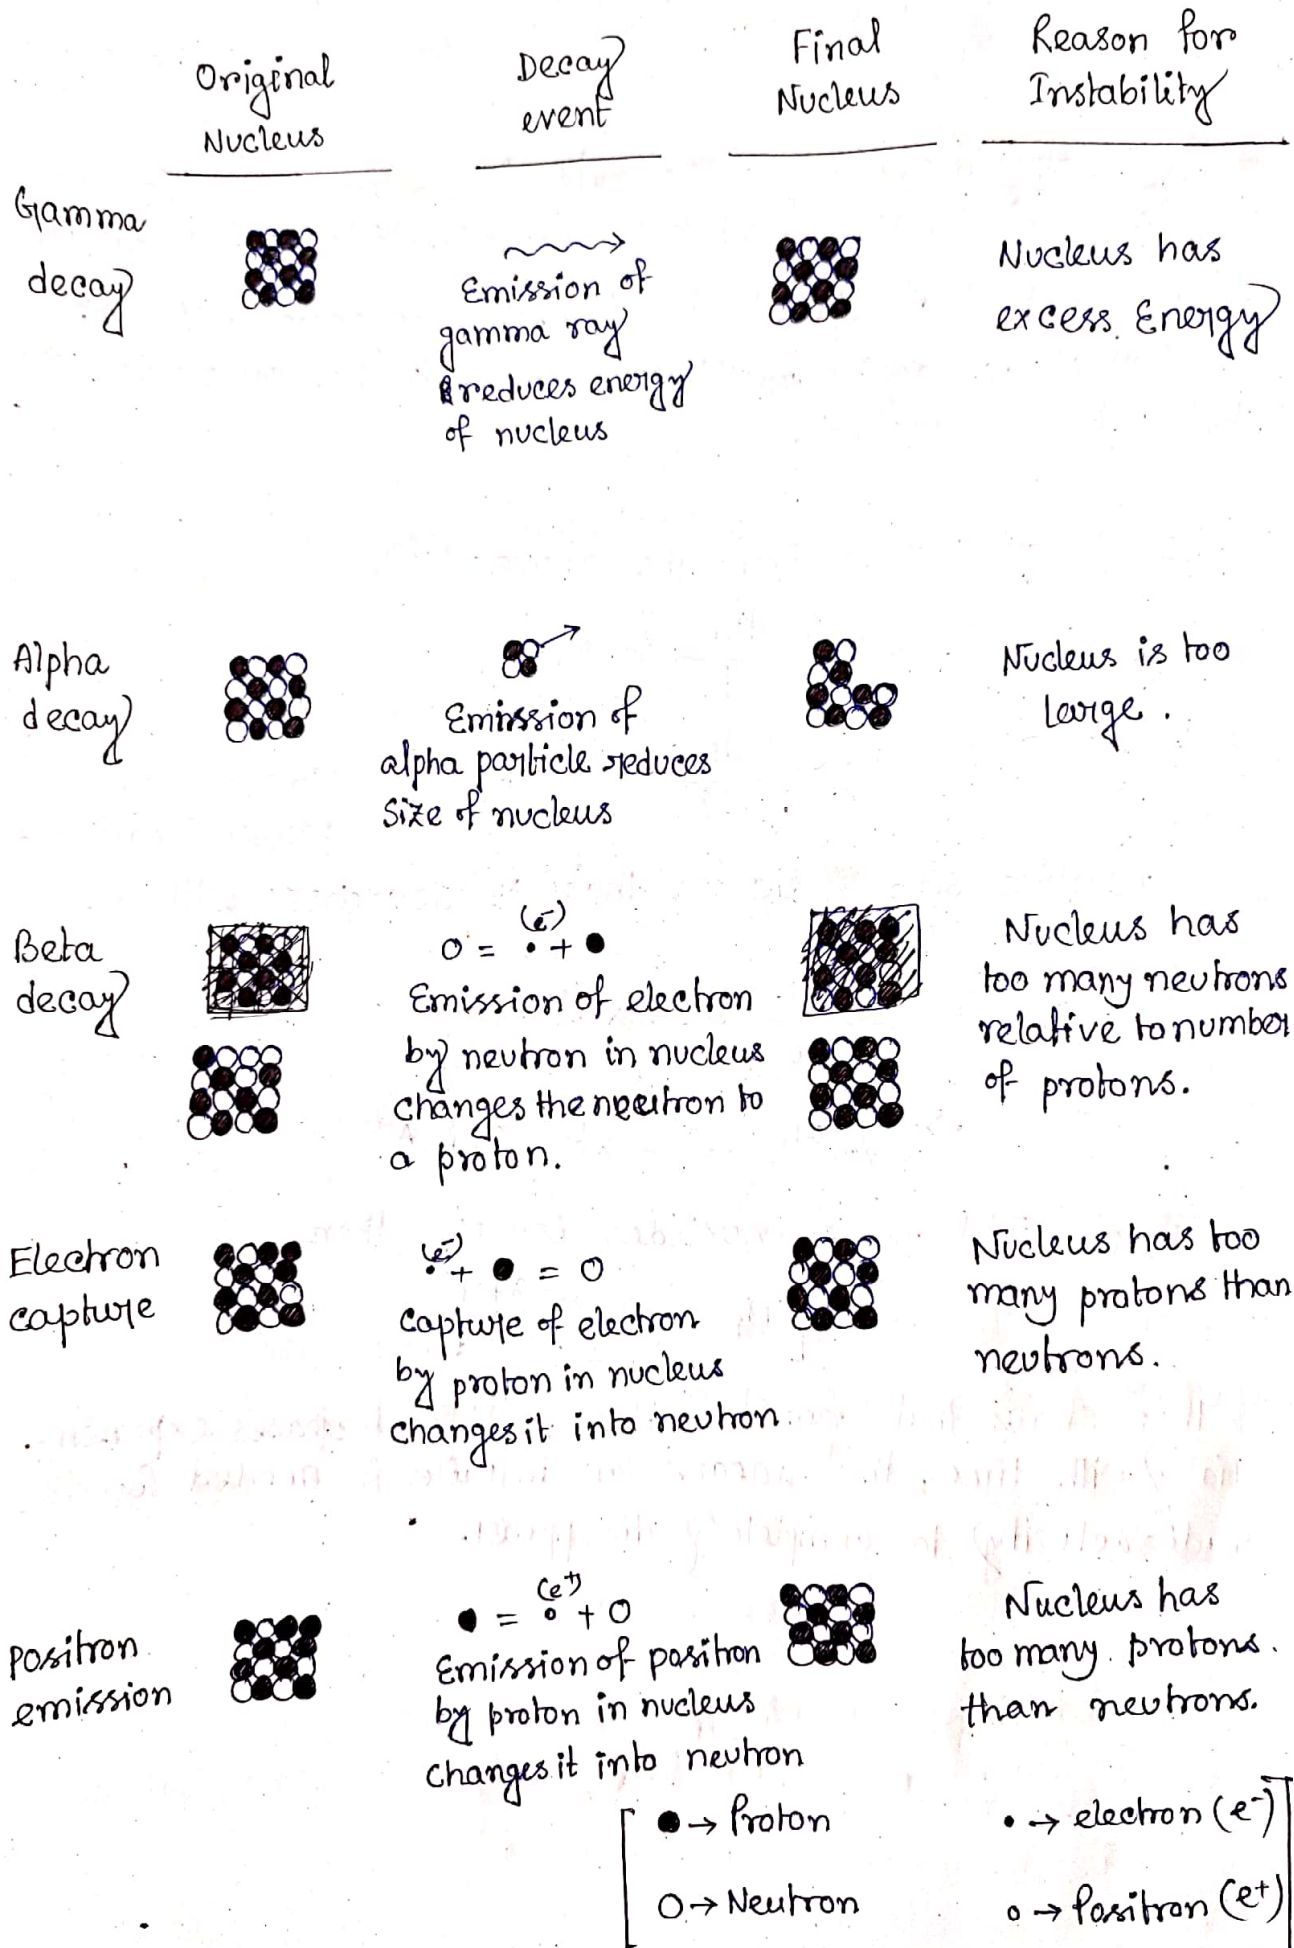 Original
Nucleus
Decay
event
Final
Nucleus
Reason for
Instability
Gamma
decay
Emission of
gamma ray
reduces energy
of nucleus
Nucleus has
excess Energy
Alpha
decay
Emission of
alpha particle reduces
Size of nucleus
Nucleus is too
large.
Beta
decay
(e-)
O = • + ●
Emission of electron
by neutron in nucleus
changes the neutron to
a proton.
Nucleus has
too many neutrons
relative to number
of protons.
Electron
capture
(e-)
• + ● = O
Capture of electron
by proton in nucleus
changes it into neutron
Nucleus has too
many protons than
neutrons.
Positron
emission
(e+)
● = o + O
Emission of positron
by proton in nucleus
changes it into neutron
Nucleus has
too many protons.
than neutrons.
● → Proton
• → electron (e-)
O → Neutron
o → Positron (e+)